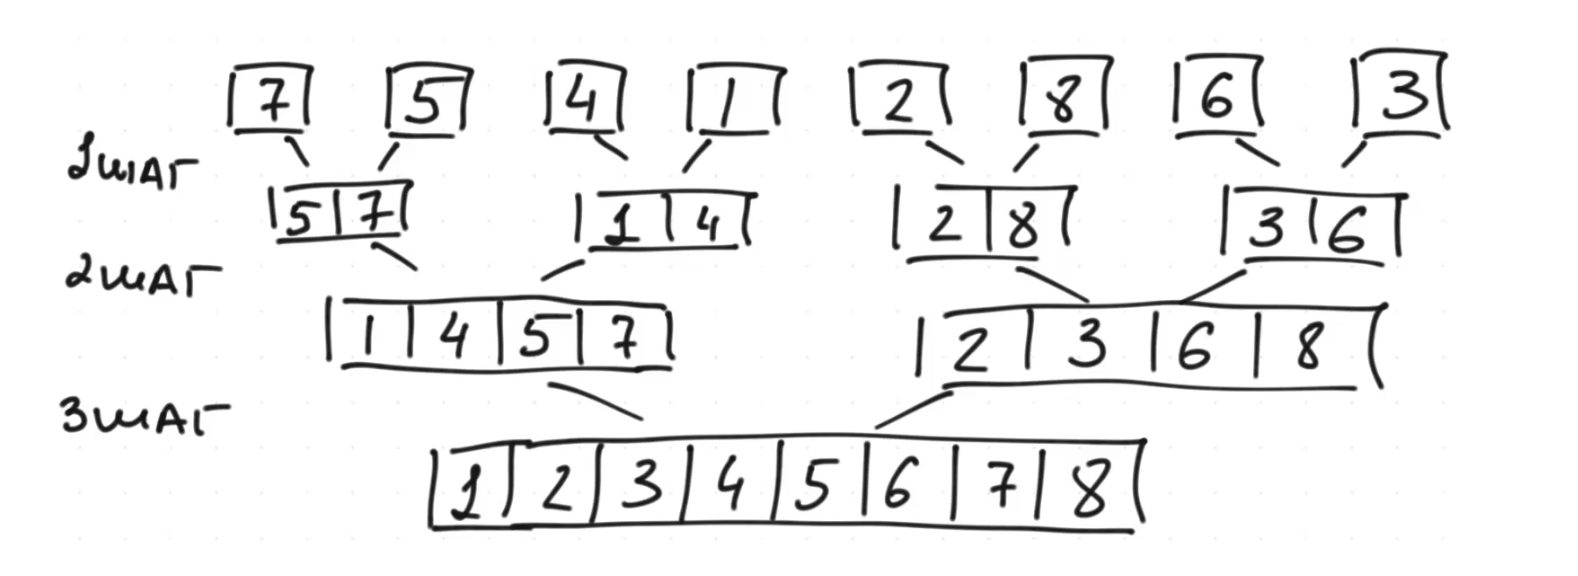 7 5 4 1 2 8 6 3
1 шаг
5 7 1 4 2 8 3 6
2 шаг
1 4 5 7 2 3 6 8
3 шаг
1 2 3 4 5 6 7 8